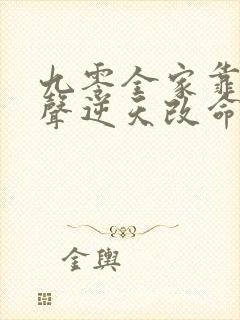 九零全家靠
聲逆天改命
金輿